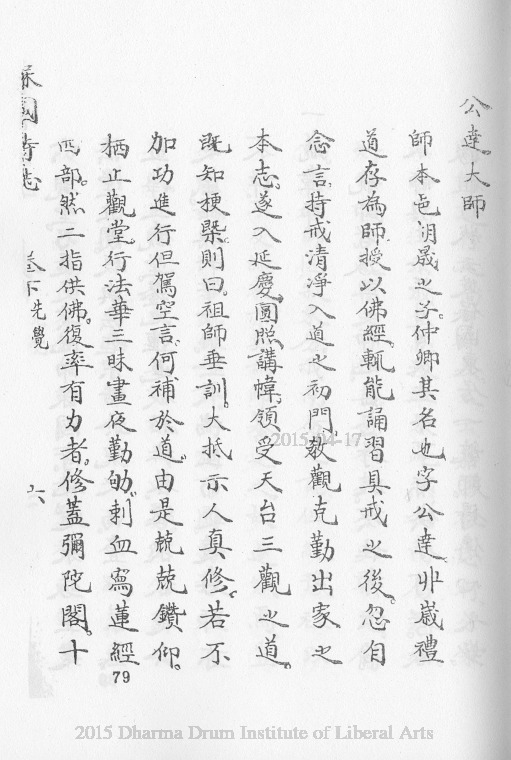 公達大師
師本邑胡晟之子仲卿其名也字公達丱歲禮
道存為師授以佛經輒能誦習具戒之後忽自
念言持戒清淨入道之初門教觀克勤出家之
本志遂入延慶圓照講幃領受天台三觀之道
既知梗槩則曰祖師垂訓大抵示人真修若不
加功進行但駕空言何補於道由是兢兢鑽仰
栖止觀堂行法華三昧晝夜勤劬刺血寫蓮經
四部然二指供佛復率有力者修蓋彌陀閣十
國寺志
卷下先覺
六
79
2015-04-17
2015 Dharma Drum Institute of Liberal Arts